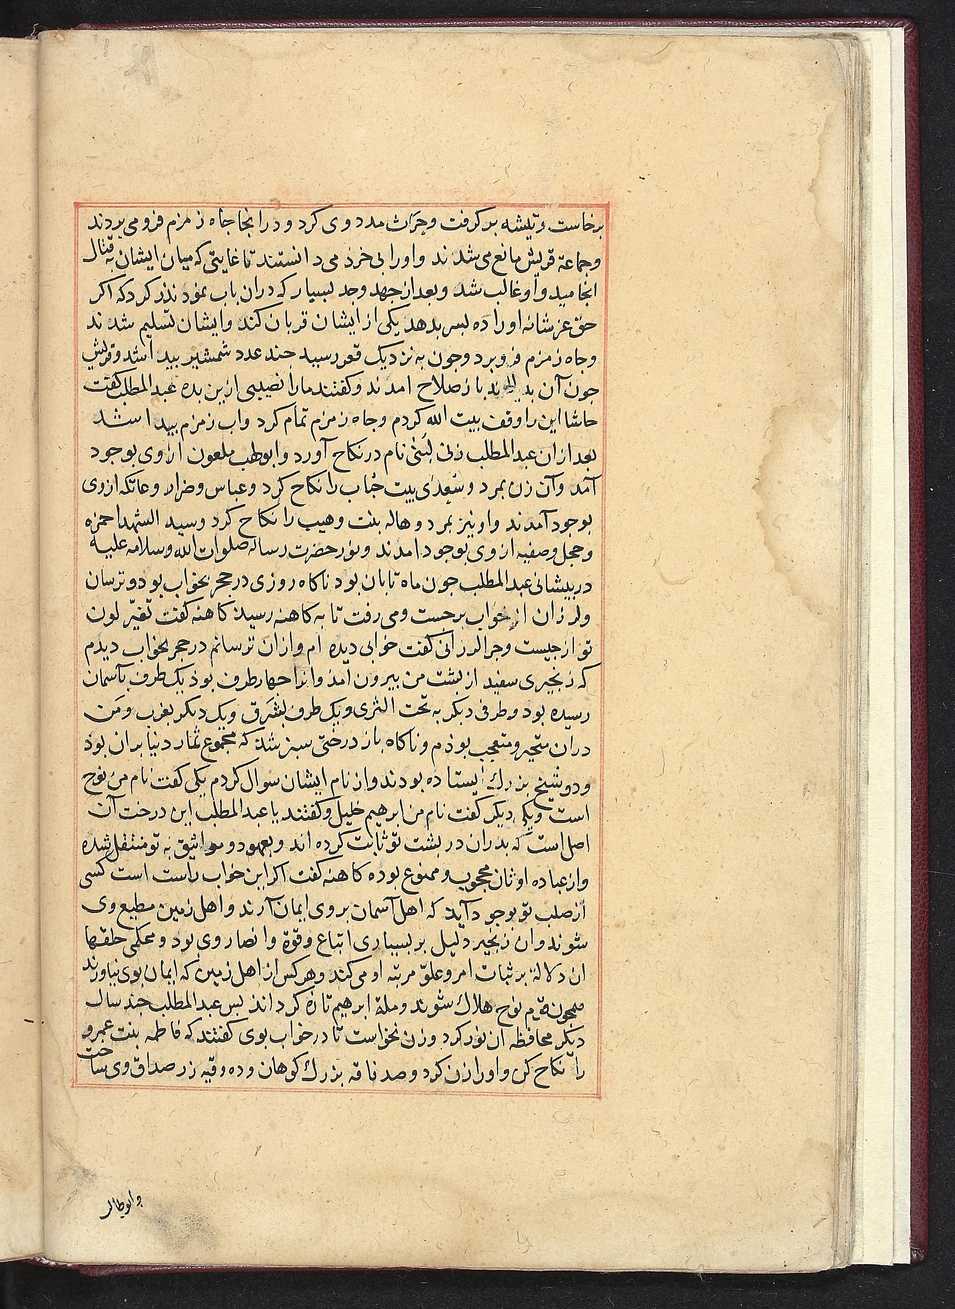 برخاست و تیشه برگرفت و حراث مدد وی کرد و در انجا جاه زمزم فرو می بردند
و جماعة قریش مانع می شدند و او را بی خرد می دانستند تا غایتی که میان ایشان به قتال
انجامید و او غالب شد و بعد از جهد وجد بسیار که دران باب نمود نذر کرد که اکر
حق عز شانه او را ده پسر بدهد یکی از ایشان قربان کند و ایشان تسلیم شدند
و جاه زمزم فرو برد و جون به نزدیک قعر رسید جند عدد شمشیر بیدا شد و قریش
جون آن بدیدند باز صلاح امدند و کفتند ما را نصیبی ازین بده عبد المطلب کفت
حاشا این را وقف بیت الله کردم و جاه زمزم تمام کرد واب زمزم بیدا شد
بعد ازان عبد المطلب زنی لبنی نام در نکاح آورد و ابولهب ملعون از وی بوجود
آمد وآن زن بمرد و سعدی بیت حباب را نکاح کرد و عباس و ضرار و عاتکه از وی
بوجود آمدند و او نیز بمرد و هاله بنت وهیب را نکاح کرد و سید الشهدا حمزه
و حجل و صفیه از وی بوجود امدند و نور حضرت رساله صلوات الله و سلامه علیه
در بیشانی عبد المطلب جون ماه تابان بود ناکاه روزی در حجر بخواب بود و ترسان
و لرزان از خواب برجست و می رفت تا به کاهنه رسید کاهنه کفت تغیر لون
تو از جیست و جرا لرزانی کفت خوابی دیده ام و ازان ترسانم در حجر بخواب دیدم
که زنجیری سفید از بشت من بیرون آمد و انرا جهار طرف بود یک طرف بآسمان
رسیده بود و طرفی دیکر به تحت الثری و یک طرف بشرق و یک دیکر بغرب و من
دران متحیر و متعجب بودم و ناکاه باز درختی سبز شد که مجموع ثمار دنیا بران بود
و دو شیخ بزرك ایستاده بودند و از نام ایشان سوال کردم یکی کفت نام من نوح
است و یکی دیکر کفت نام من ابرهیم خلیل و کفتند یا عبد المطلب این درخت آن
اصل است که بدران در بشت تو ثابت کرده اند و بعهود و مواثیق به تو منتقل شده
و از عباده اوثان محجوب و ممنوع بوده کاهنه کفت اکر این خواب راست است کسی
از صلب تو بوجود آید که اهل آسمان بر وی ایمان آرند و اهل زمین مطیع وی
شوند و ان زنجیر دلیل بر بسیاری اتباع و قوة و انصار وی بود و محکمی حلقها
ان دلالة بر ثبات امر و علو مرتبه او می کند و هر کس از اهل زمین که ایمان بوی نیاورند
همجو قوم نوح هلاك شوند و ملة ابرهیم تازه کرداند بس عبد المطلب جند سال
دیکر محافظه ان نور کرد و زن نخواست تا در خواب بوی کفتند که فاطمه بنت عمرو
را نکاح کن و او را زن کرد و صد ناقه بزرك کوهان و ده وقیه زر صداق وی ساخت
وابوطالب